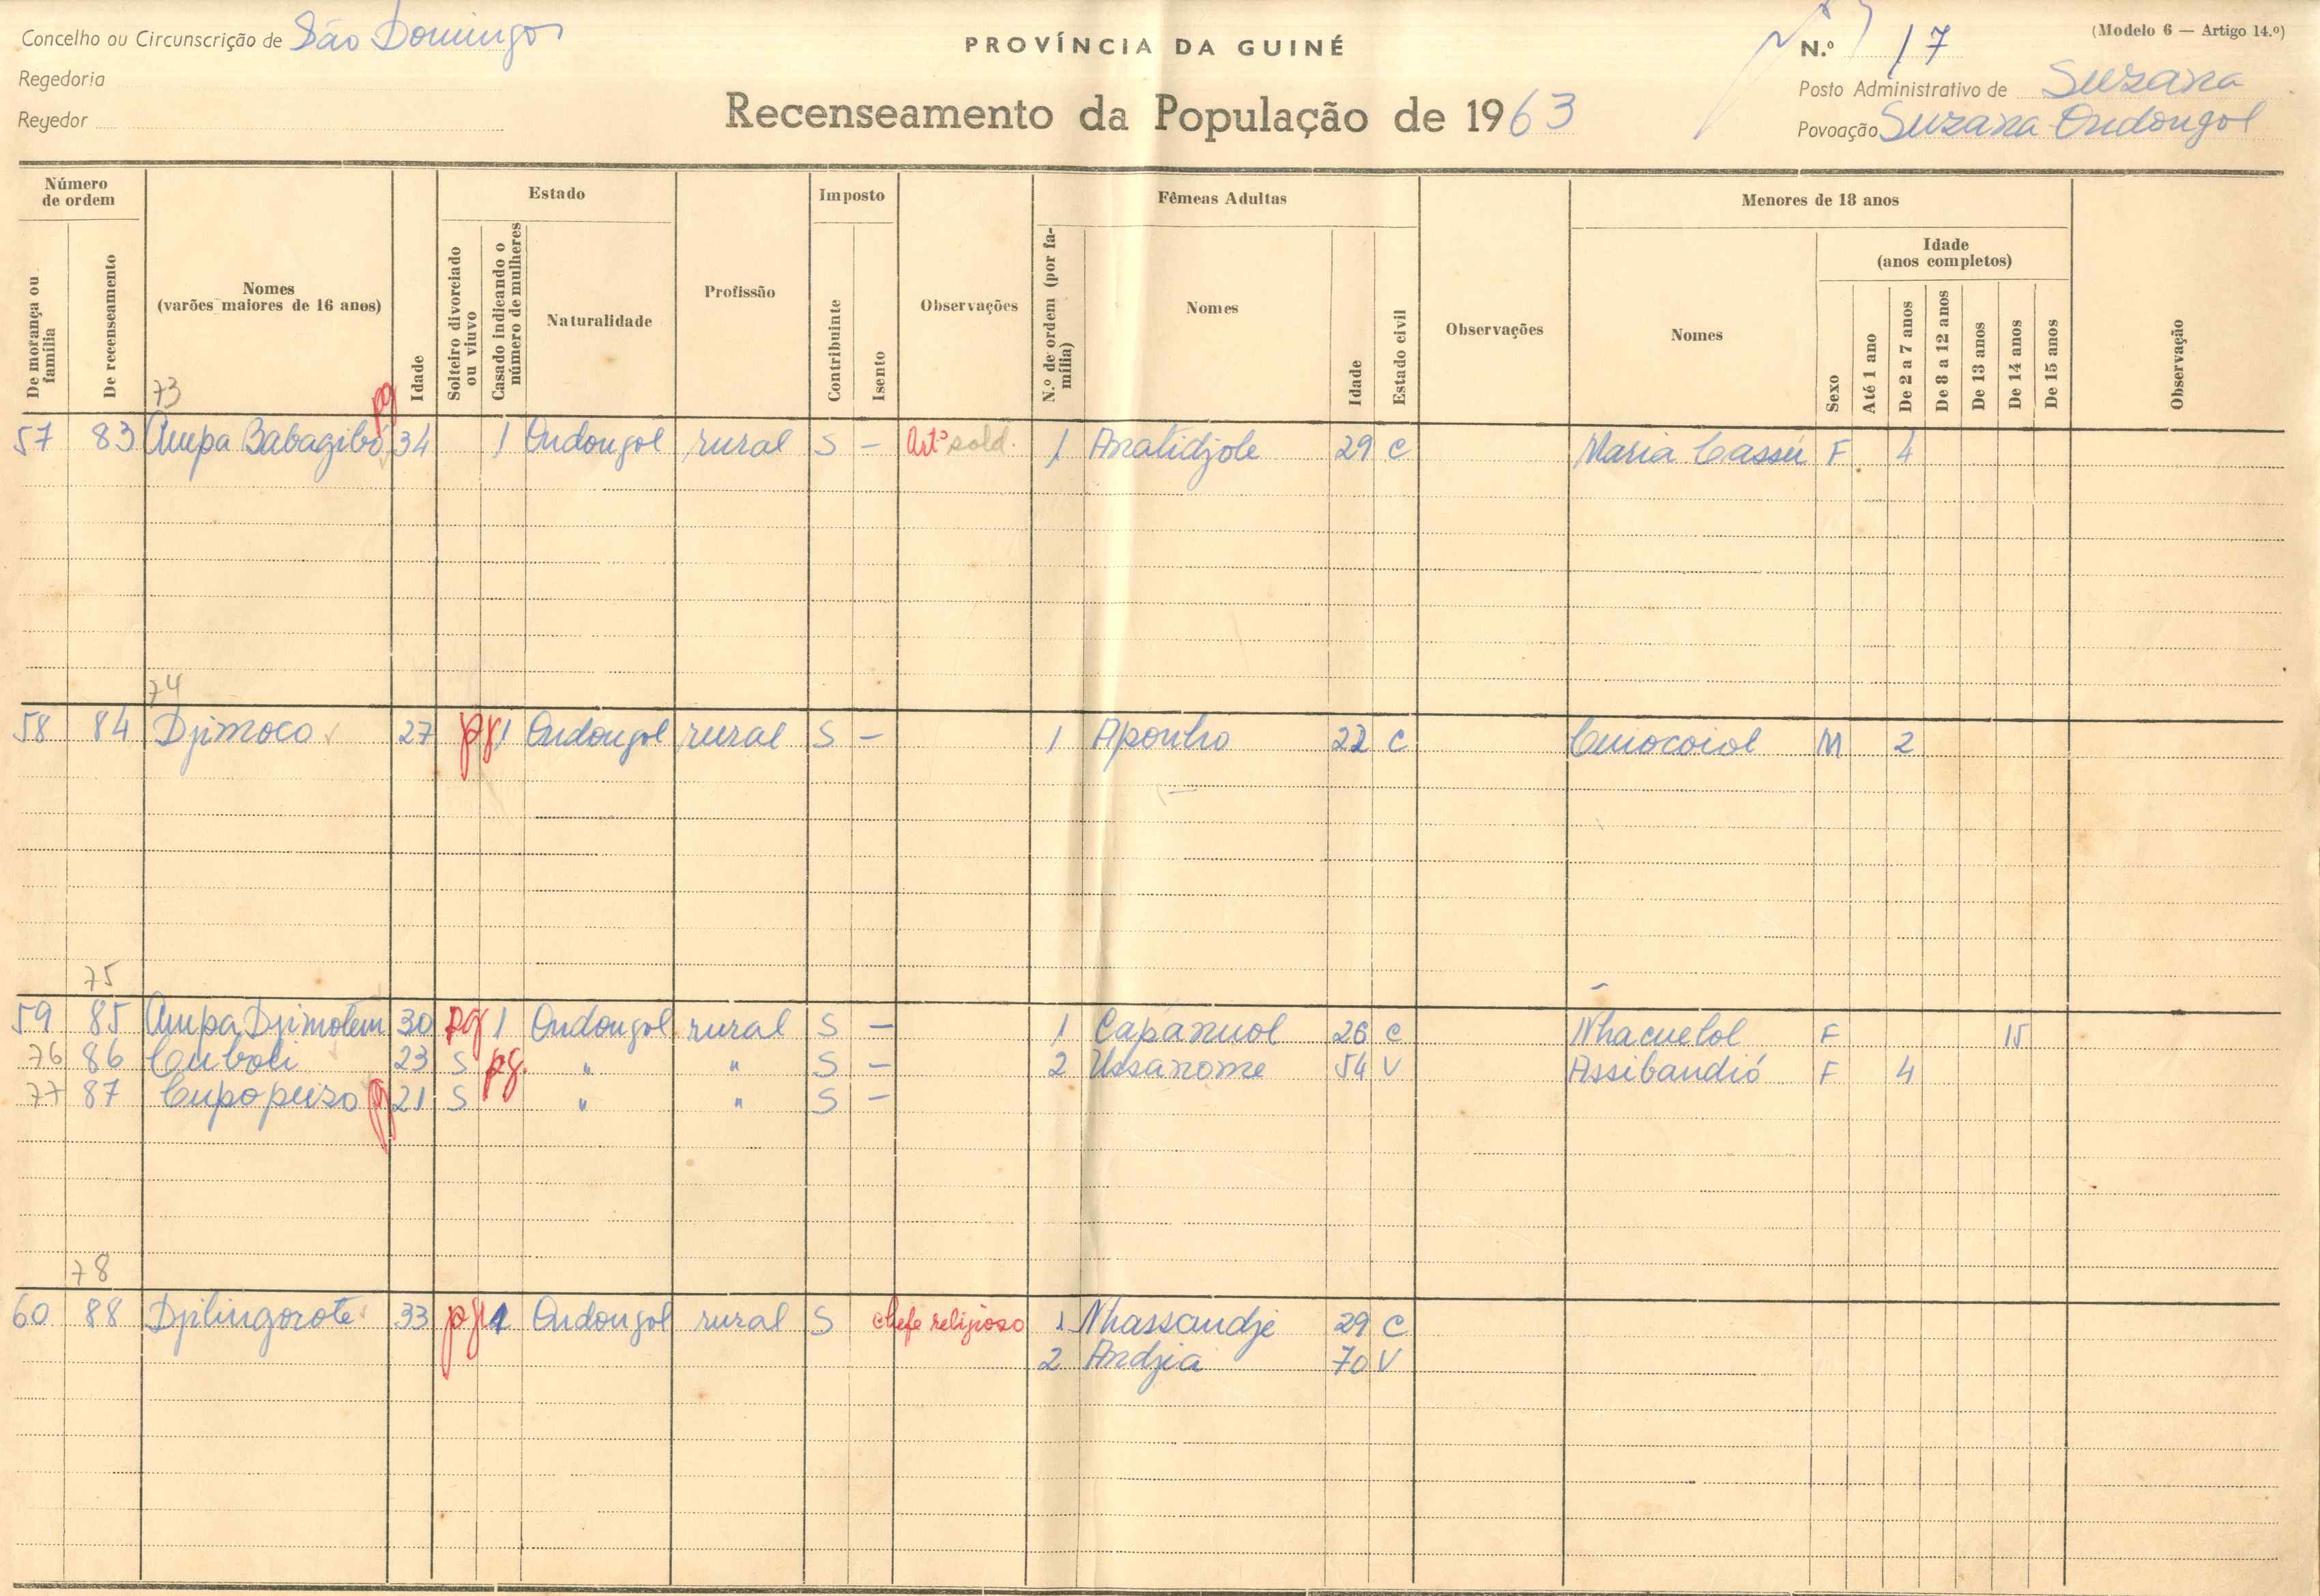 Concelho ou Circunscrição de São Domingos
PROVÍNCIA DA GUINÉ
N.º 17
(Modelo 6 — Artigo 14.º)
Regedoria
Posto Administrativo de Suzana
Regedor
Recenseamento da População de 1963
Povoação Suzana Ondongol
Número de ordem
De morança ou família
De recenseamento
Nomes
(varões maiores de 16 anos)
Idade
Estado
Solteiro divorciado ou viuvo
Casado indicando o número de mulheres
Naturalidade
Profissão
Imposto
Contribuinte
Isento
Observações
Fêmeas Adultas
N.º de ordem (por família)
Nomes
Idade
Estado civil
Observações
Menores de 18 anos
Nomes
Sexo
Idade
(anos completos)
Até 1 ano
De 2 a 7 anos
De 8 a 12 anos
De 13 anos
De 14 anos
De 15 anos
Observação
73 pg
57 83 Ampa Babagibó 34 1 Ondongol rural S — Artº sold. 1 Analidjole 29 C Maria Cassú F 4
74
58 84 Djimoco 27 pg 1 Ondongol rural S — 1 Aponho 22 C M 2
75
59 85 Ampa Djimolem 30 pg 1 Ondongol rural S — 1 Capanuol 26 C Nhacuelol F 15
76 86 Cuboli 23 S pg. " " S — 2 Ussanome 54 V Assibandió F 4
77 87 pg 21 S " " S —
78
60 88 Djilingorote 33 pg 1 Ondongol rural S chefe religioso 1 Nhassandje 29 C
2 Andjia 70 V